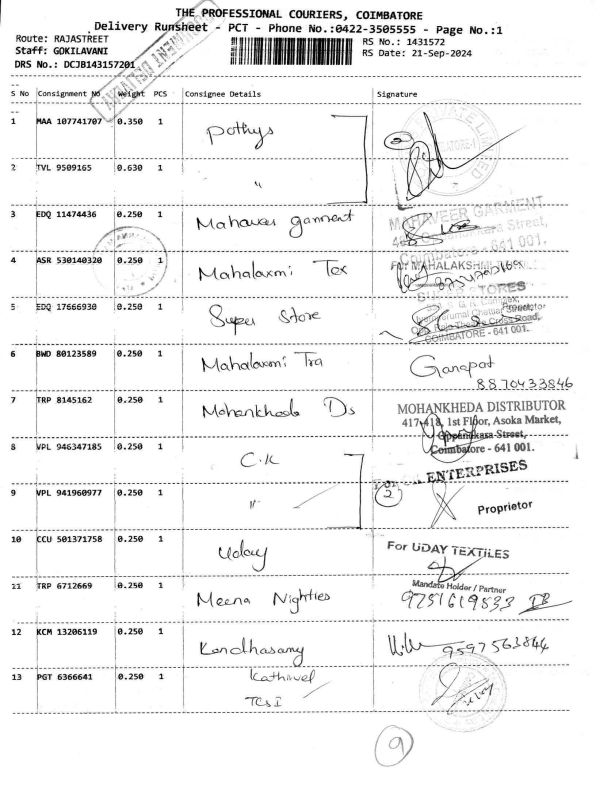 THE PROFESSIONAL COURIERS, COIMBATORE
Delivery Runsheet - PCT - Phone No.:0422-3505555 - Page No.:1
Route: RAJASTREET
Staff: GOKILAVANI
DRS No.: DCJB143157201
RS No.: 1431572
RS Date: 21-Sep-2024
S No Consignment No Weight PCS Consignee Details Signature
1 MAA 107741707 0.350 1 Pothys
2 TVL 9509165 0.630 1 "
3 EDQ 11474436 0.250 1 Mahaveer garment
MAHAVEER GARMENT
Street,
Coimbatore - 641 001.
4 ASR 530140320 0.250 1 Mahalaxmi Tex
For MAHALAKSHMI
5 EDQ 17666930 0.250 1 Super Store
STORES
COIMBATORE - 641 001.
6 BWD 80123589 0.250 1 Mahalaxmi Tra Ganapat
8870433846
7 TRP 8145162 0.250 1 Mohankheda Ds
MOHANKHEDA DISTRIBUTOR
417-418, 1st Floor, Asoka Market,
Oppanakara Street,
Coimbatore - 641 001.
8 VPL 946347185 0.250 1 C.K
ENTERPRISES
9 VPL 941960977 0.250 1 " 2
Proprietor
10 CCU 501371758 0.250 1 Uday
For UDAY TEXTILES
Mandate Holder / Partner
11 TRP 6712669 0.250 1 Meena Nighties 9751619533
12 KCM 13206119 0.250 1 Kandhasamy 9597563844
13 PGT 6366641 0.250 1 Kathirvel
TCS I
9